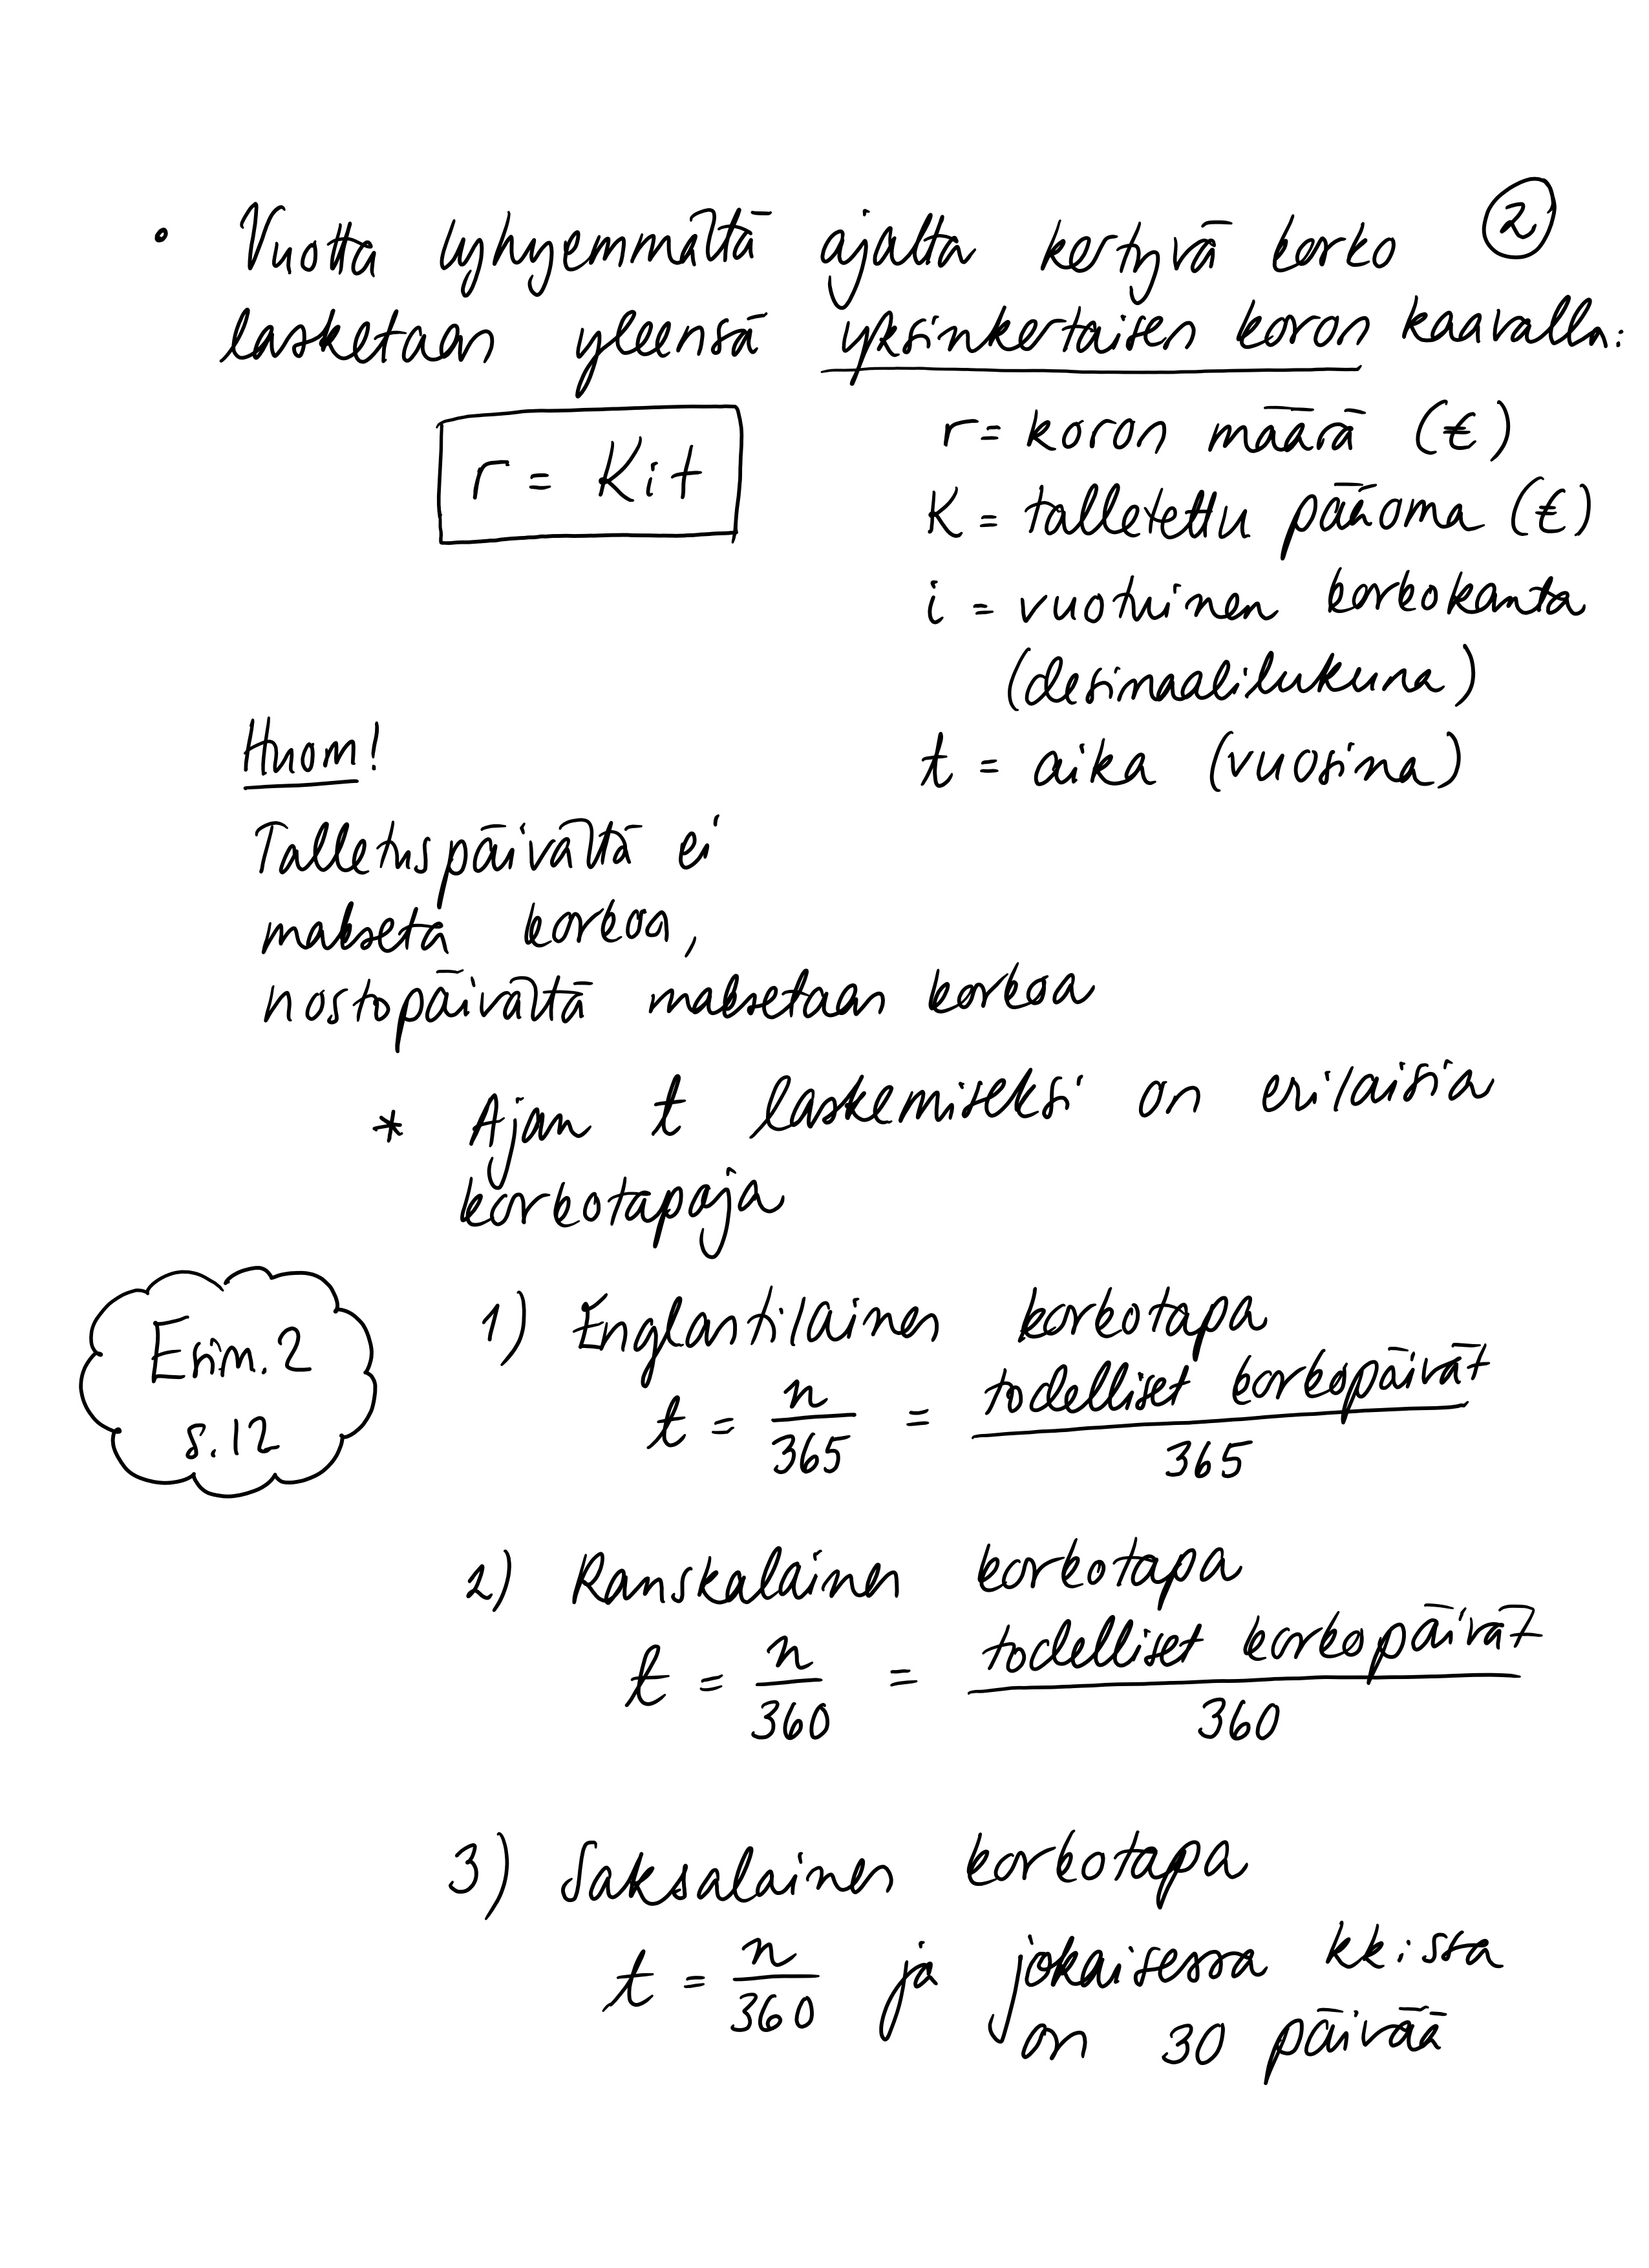 ②
• Vuotta lyhyemmältä ajalta kertyvä korko
lasketaan yleensä yksinkertaisen koron kaavalla:
r = Kit
r = koron määrä (€)
K = talletettu pääoma (€)
i = vuotuinen korkokanta
(desimaalilukuna)
t = aika (vuosina)
Huom!
Talletuspäivältä ei
makseta korkoa,
nostopäivältä maksetaan korkoa
* Ajan t laskemiseksi on erilaisia
korkotapoja
Esim. 2
s. 12
1) Englantilainen korkotapa
t = n/365 = todelliset korkopäivät/365
2) Ranskalainen korkotapa
t = n/360 = todelliset korkopäivät/360
3) Saksalainen korkotapa
t = n/360 ja jokaisessa kk:ssa
on 30 päivää